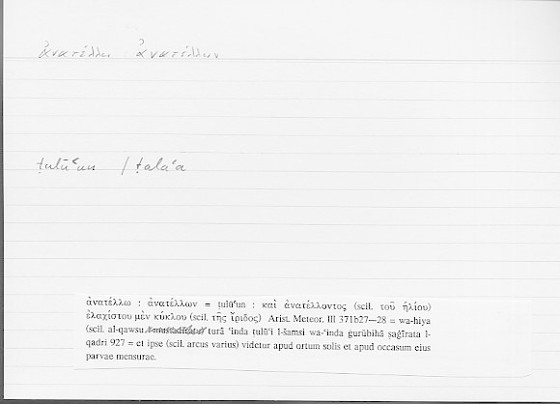 ἀνατέλλω ἀνατέλλων
ṭulūʿun / ṭalaʿa
ἀνατέλλω : ἀνατέλλων = ṭulūʿun : καὶ ἀνατέλλοντος (scil. τοῦ ἡλίου)
ἐλαχίστου μὲν κύκλου (scil. τῆς ἴριδος) Arist. Meteor. III 371b27—28 = wa-hiya
(scil. al-qawsu turā ʿinda ṭulūʿi l-šamsi wa-ʿinda ġurūbihā ṣaġīrata l-
qadri 927 = et ipse (scil. arcus varius) videtur apud ortum solis et apud occasum eius
parvae mensurae.